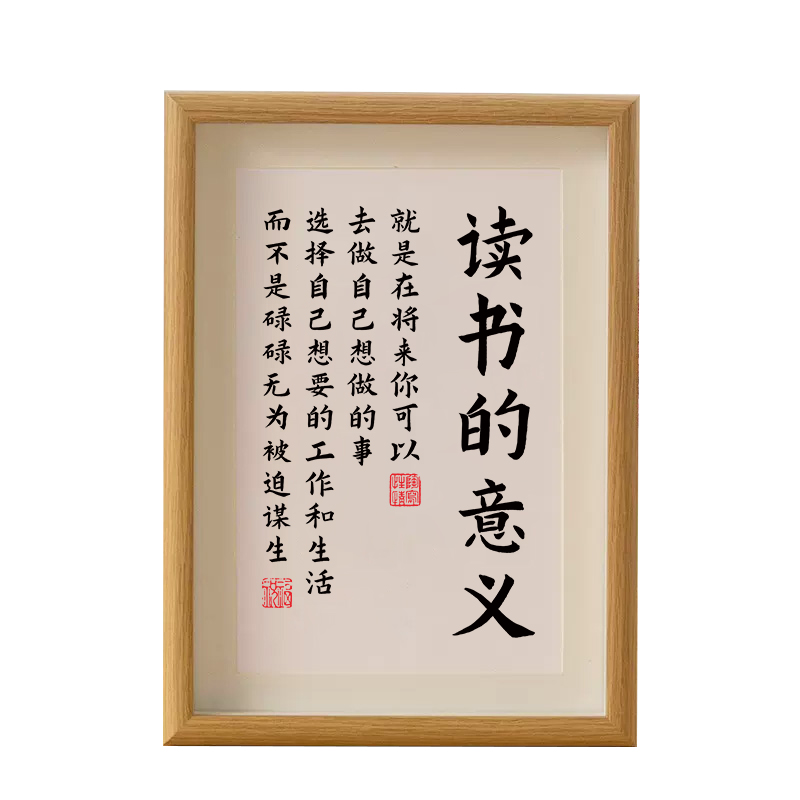 读书的意义
就是在将来你可以
去做自己想做的事
选择自己想要的工作和生活
而不是碌碌无为被迫谋生